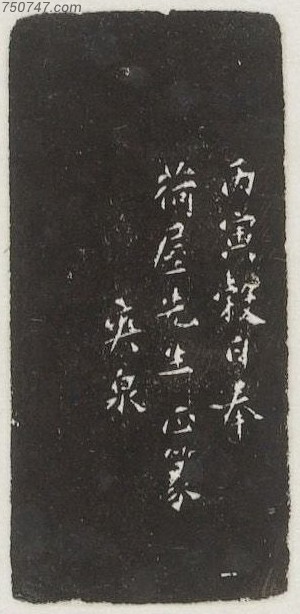 750747.com
丙寅穀日奉
荷屋先生正篆
爽泉